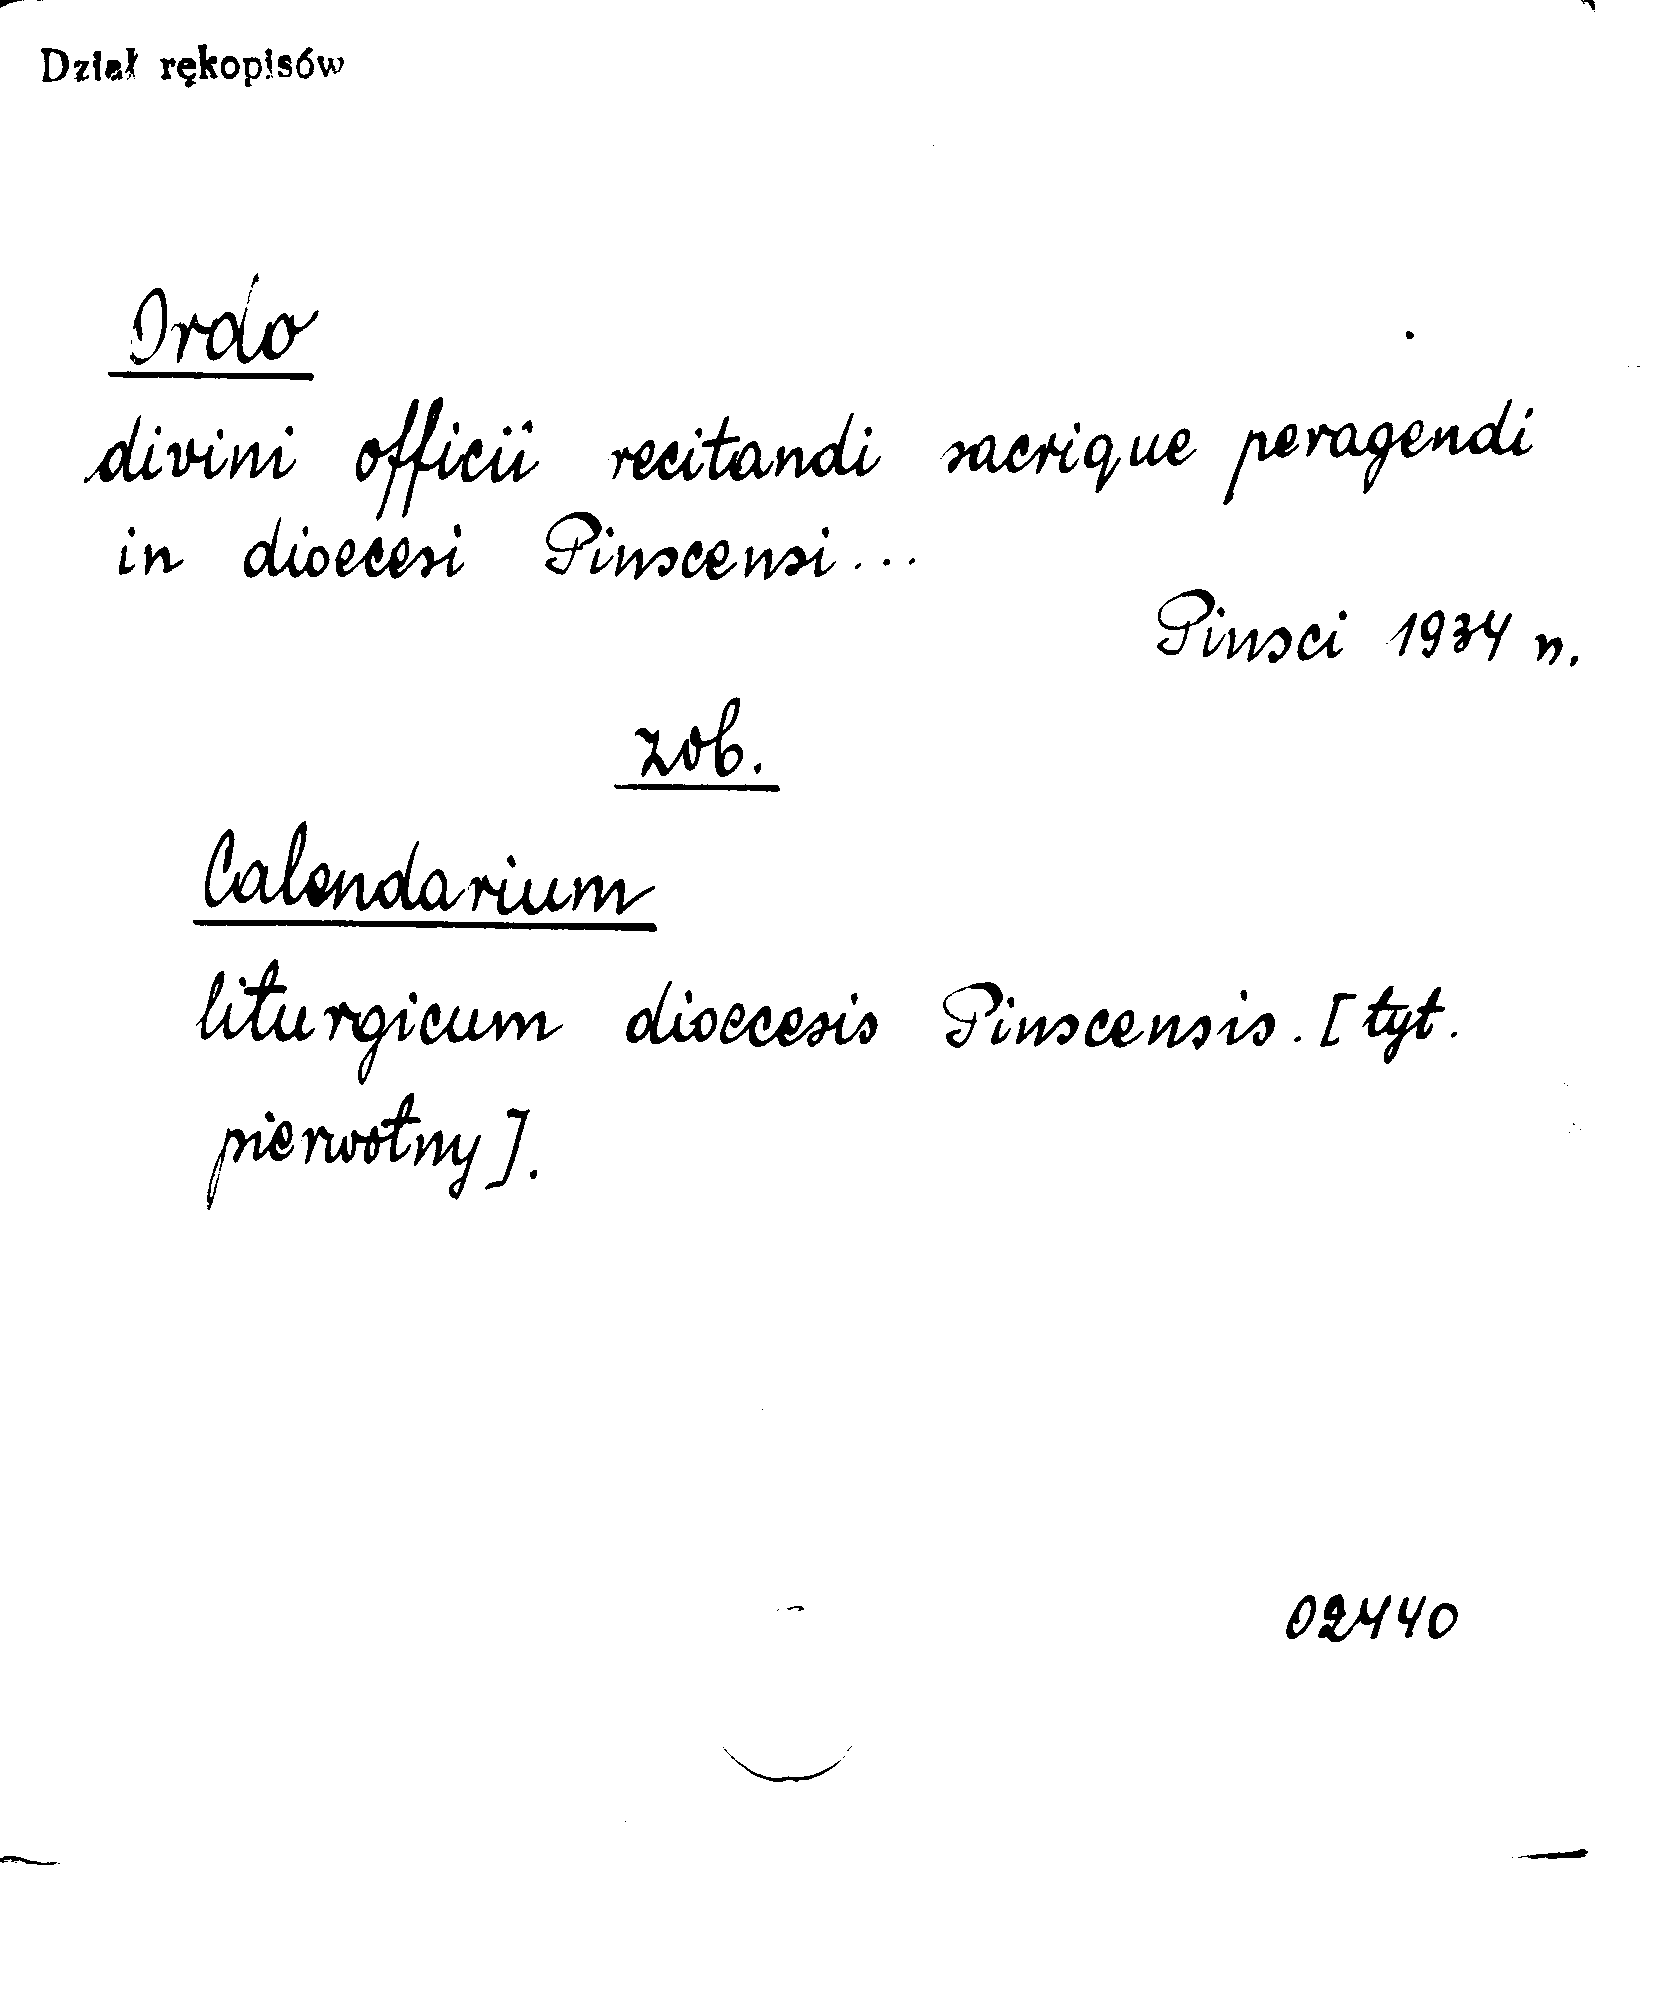 Dział rękopisów
Ordo
divini officii recitandi sacrique peragendi
in dioecesi Pinscensi...
Pinsci 1934 n.
zob.
Calendarium
liturgicum dioecesis Pinscensis. [tyt.
pierwotny].
02440